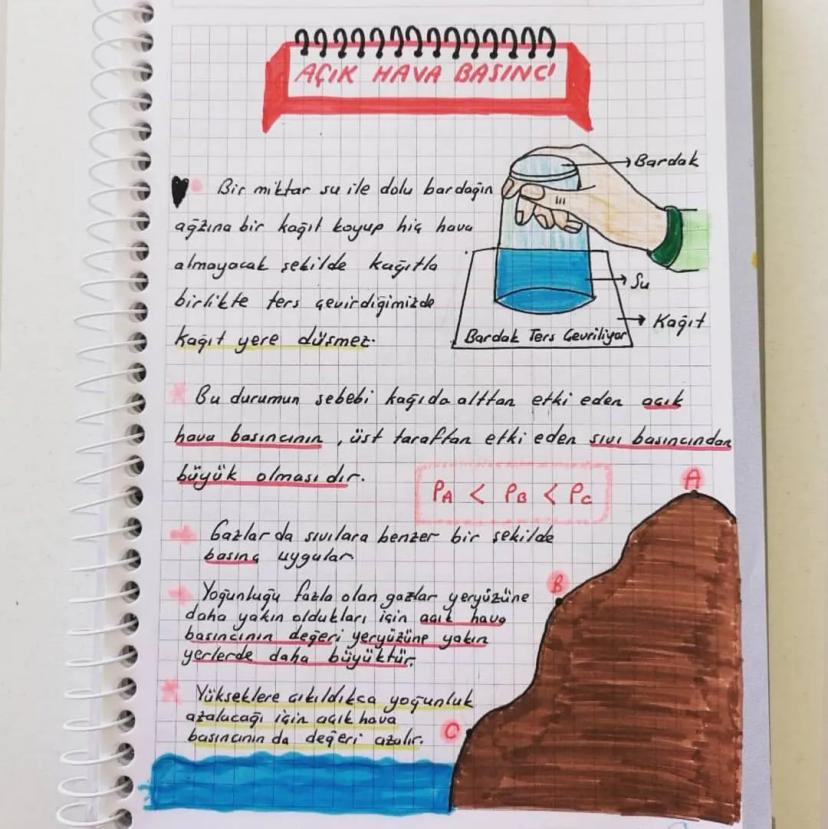 AÇIK HAVA BASINCI
Bir miktar su ile dolu bardağın
ağzına bir kağıt koyup hiç hava
almayacak şekilde kağıtla
birlikte ters çevirdiğimizde
kağıt yere düşmez.
Bardak
Su
Kağıt
Bardak Ters Çevriliyor
Bu durumun sebebi kağıda alttan etki eden açık
hava basıncının, üst taraftan etki eden sıvı basıncından
büyük olmasıdır.
PA < PB < PC
A
Gazlar da sıvılara benzer bir şekilde
basınç uygular
B
Yoğunluğu fazla olan gazlar yeryüzüne
daha yakın oldukları için açık hava
basıncının değeri yeryüzüne yakın
yerlerde daha büyüktür.
Yükseklere çıkıldıkça yoğunluk
azalacağı için açık hava
basıncının da değeri azalır.
C